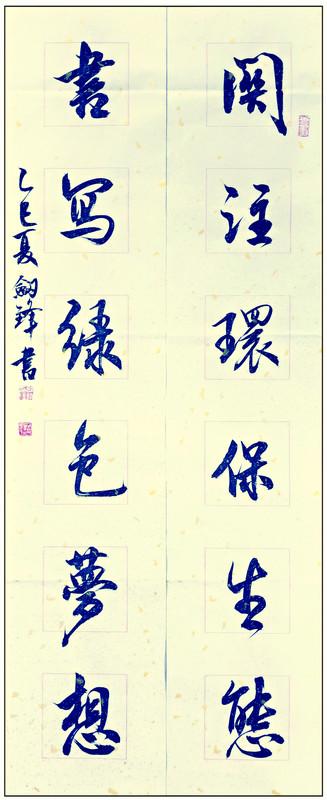 関注環保生態
書写绿色夢想
乙巳夏劍鋒書